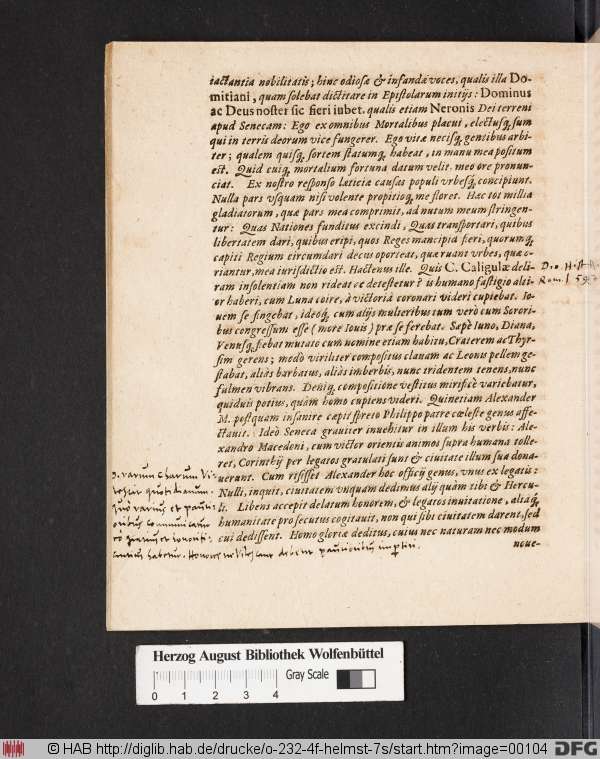 iactantia nobilitatis; hinc odiosæ & infandæ voces, qualis illa Do-
mitiani, quam solebat dictitare in Epistolarum initijs: Dominus
ac Deus noster sic fieri iubet. qualis etiam Neronis Dei terreni
apud Senecam: Ego ex omnibus Mortalibus placui, electusq́, sum
qui in terris deorum vice fungerer. Ego vitæ necisq́, gentibus arbi-
ter; qualem quisq́, sortem statumq́, habeat, in manu mea positum
est. Quid cuiq́, mortalium fortuna datum velit, meo ore pronun-
ciat. Ex nostro responso lætitiæ causas populi vrbesq́, concipiunt.
Nulla pars vsquam nisi volente propitioq́, me floret. Hæc tot millia
gladiatorum, quæ pax mea comprimit, ad nutum meum stringen-
tur: Quas Nationes funditus excindi, Quas transportari, quibus
libertatem dari, quibus eripi, quos Reges mancipia fieri, quorumq́,
capiti Regium circumdari decus oporteat, quæ ruant vrbes, quæ o-
riantur, mea iurisdictio est. Hactenus ille. Quis C. Caligulæ deli-
ram insolentiam non rideat
or haberi, cum Luna coire, à victoria coronari videri cupiebat. Io-
uem se fingebat, ideoq́, cum alijs mulieribus tum verò cum Sorori-
bus congressum esse (more Iouis) præ se ferebat. Sæpè Iuno, Diana,
Venusq́, fiebat mutato cum nomine etiam habitu, Craterem ac Thyr-
sum gerens; modò viriliter compositus clauam ac Leonis pellem ge-
stabat, aliàs barbatus, aliàs imberbis, nunc tridentem tenens, nunc
fulmen vibrans. Deniq́, compositione vestitus mirificè variebatur,
quiduis potius, quàm homo cupiens videri. Quinetiam Alexander
M. postquam insanire cœpit spreto Philippo patre cœleste genus affe-
ctauit. Ideò Seneca grauiter inuehitur in illum his verbis: Ale-
xandro Macedoni, cum victor orientis animos supra humana tolle-
ret, Corinthij per legatos gratulati sunt & ciuitate illum sua dona-
uerunt. Cum risisset Alexander hoc officij genus, vnus ex legatis:
Nulli, inquit, ciuitatem vnquam dedimus alij quàm tibi & Hercu-
li. Libens accepit delatum honorem, & legatos inuitatione, aliaq́,
humanitate prosecutus cogitauit, non qui sibi ciuitatem darent, sed
cui dedissent. Homo gloriæ deditus, cuius nec naturam nec modum
noue-
Herzog August Bibliothek Wolfenbüttel
0 1 2 3 4 Gray Scale
© HAB http://diglib.hab.de/drucke/o-232-4f-helmst-7s/start.htm?image=00104
DFG